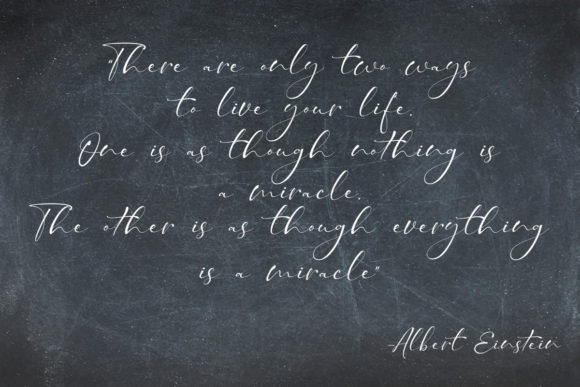 "There are only two ways
to live your life.
One is as though nothing is
a miracle.
The other is as though everything
is a miracle"
-Albert Einstein